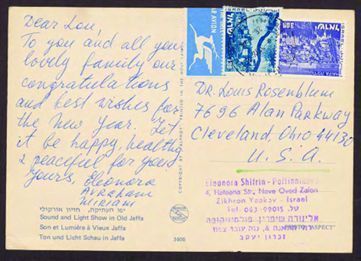 Dear Lou,
To you and all your
lovely family our
congratulations
and best wishes for
the New Year. Let
it be happy, healthy
& peaceful for you!
Yours, Eleonora
Avraham
Miriam
ימי העתיקה, חזיון אורקולי
Sound and Light Show in Old Jaffa
Son et Lumière à Vieux Jaffa
Ton und Licht Schau in Jaffa
3400
Dr. Louis Rosenblum
7696 Alan Parkway
Cleveland, Ohio 44130
U.S.A.
Eleonora Shifrin - Poltinnikova
4, Hatsona Str., Nave Oved Zalon
Zikhron Yaakov - Israel
Tel. 063-99015
אלינורה שיפרין - פולטיניקובה
זכרון יעקב